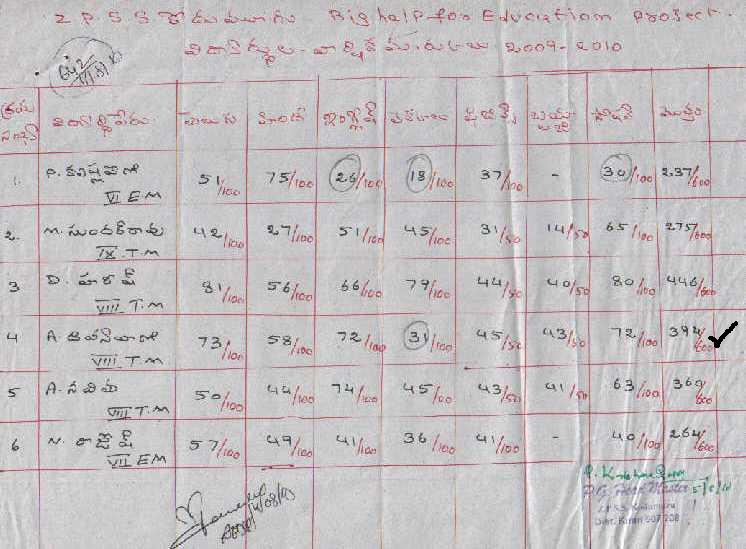 Z P S S కోదుమూరు Big help for Education Project.
విద్యార్థుల - వార్షిక మార్కులు 2009-2010
క్రమ సంఖ్య విద్యార్థి పేరు తెలుగు హిందీ ఇంగ్లీష్ గణితం సోషల్ మొత్తం
1. P. VI E M 51/100 75/100 26/100 18/100 37/100 - 30/100 237/600
2. M. IX T.M 42/100 27/100 51/100 45/100 31/50 14/50 65/100 275/600
3 D. హరీష్ VIII T.M 81/100 56/100 66/100 79/100 44/50 40/50 80/100 446/600
4 A. VIII T.M 73/100 58/100 72/100 31/100 45/50 43/50 72/100 394/600
5 A. నవీన VIII T.M 50/100 44/100 74/100 45/100 43/50 41/50 63/100 360/600
6 N. రాజేష్ VII E M 57/100 49/100 41/100 36/100 41/100 - 40/100 264/600
Head Master
Z.P.S.S.
507 208